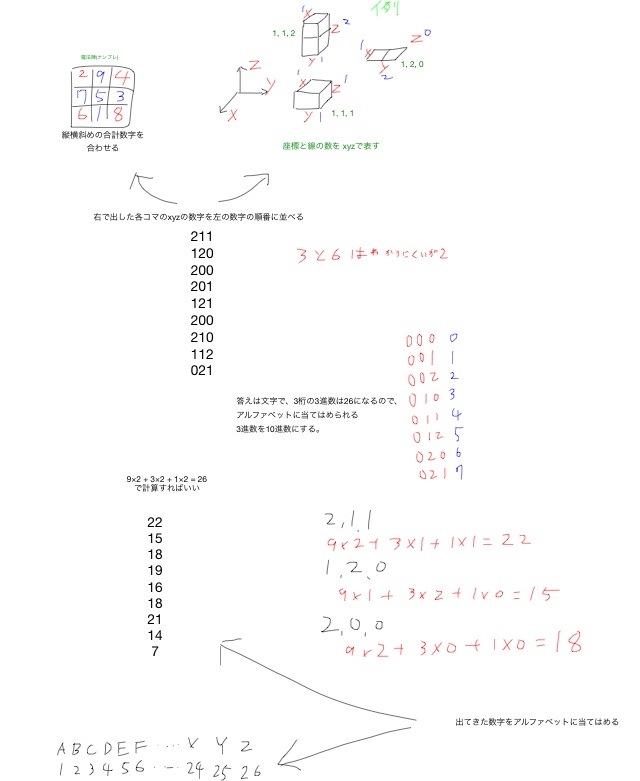 魔法陣(ナンプレ)
2 9 4
7 5 3
6 1 8
縦横斜めの合計数字を
合わせる
例
1 X 2
Z
1, 1, 2
Y 1
Z 0
1 X
Y
2
1, 2, 0
Z
Y
X
1 X
Z 1
Y 1
1, 1, 1
座標と線の数を xyzで表す
右で出した各コマのxyzの数字を左の数字の順番に並べる
211
120
200
201
121
200
210
112
021
3と6はわかりにくいが2
000 0
001 1
002 2
010 3
011 4
012 5
020 6
021 7
答えは文字で、3桁の3進数は26になるので、
アルファベットに当てはめられる
3進数を10進数にする。
9×2 + 3×2 + 1×2 = 26
で計算すればいい
22
15
18
19
16
18
21
14
7
2,1,1
9×2+3×1+1×1=22
1,2,0
9×1+3×2+1×0=15
2,0,0
9×2+3×0+1×0=18
出てきた数字をアルファベットに当てはめる
A B C D E F ・・・ X Y Z
1 2 3 4 5 6 ・・・ 24 25 26